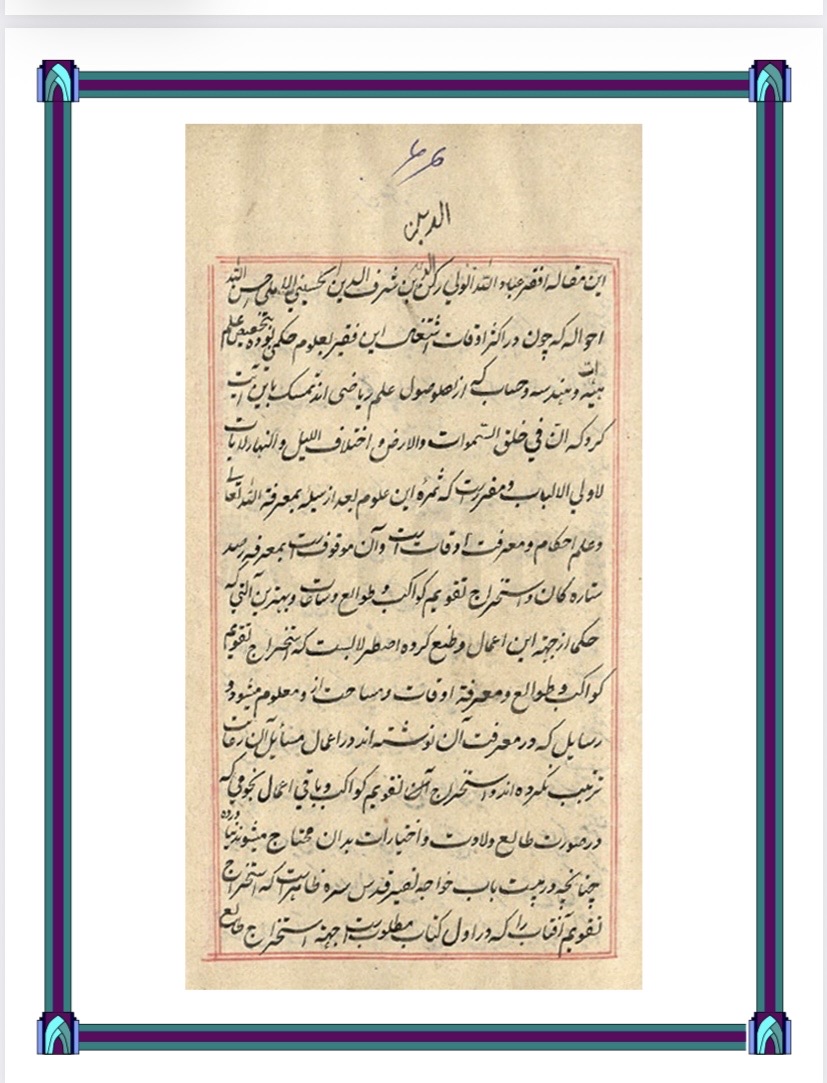 ۶۶
الدین
این مقاله افقر عباد الله الولی رکن الدین بن شرف الدین الحسینی الاملی احسن الله
احواله که چون در اکثر اوقات اشتغال این فقیر بعلوم حکمی بوده بتخصیص علم
هیئه و هندسه و حساب که از اصول علم ریاضی اند تمسک باین آیت
کرد که ان فی خلق السموات والارض و اختلاف اللیل والنهار لایات
لاولی الالباب و مقررست که ثمره این علوم بعد از وسیله بمعرفة الله تعالی
وعلم احکام ومعرفت اوقاتست وآن موقوفست بمعرفه رصد
ستاره کان واستخراج تقویم کواکب وطوالع وساعات وبهترین آلتی که
حکما ازجهة این اعمال وضع کرده اصطرلابست که استخراج تقویم
کواکب وطوالع ومعرفة اوقات ومساحت از و معلوم میشود و
رسایل که در معرفت آن نوشته اند در اعمال مسائل آن رعایت
ترتیب نکرده اند و استخراج تقویم کواکب وباقی اعمال نجومی که
در صورت طالع ولادت واختیارات بدان محتاج میشوند نیاورده
چنانچه در بیست باب خواجه نصیر قدس سره ظاهرست که استخراج
تقویم آفتاب را که در اول کتاب مطلوبست جهة استخراج طالع